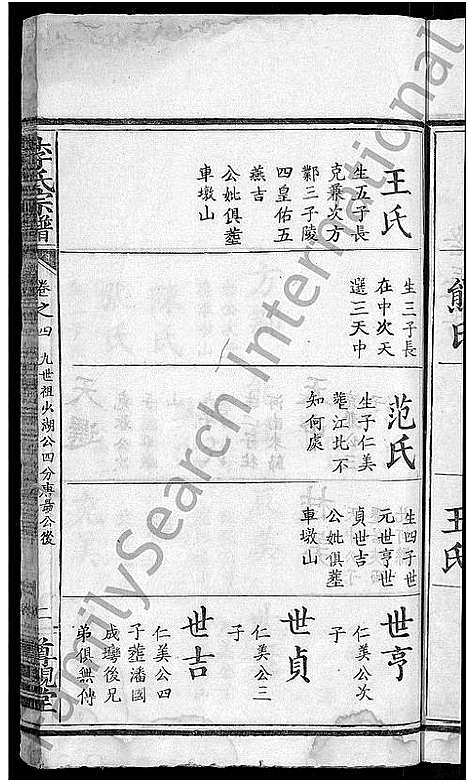 王氏
生五子長
克兼次方
鄴三子陵
四皇佑五
燕吉
公妣俱塟
車墩山
生三子長
在中次天
選三天中
范氏
生子仁美
塟江北不
知何處
生四子世
元世亨世
貞世吉
公妣俱塟
車墩山
世亨
仁美公次
子
世貞
仁美公三
子
世吉
仁美公四
子塟潘國
成塆後兄
弟俱無傳
李氏宗譜
卷之四
九世祖必湖公四分
公後
二
尊親堂
熊氏
王氏
FamilySearch International